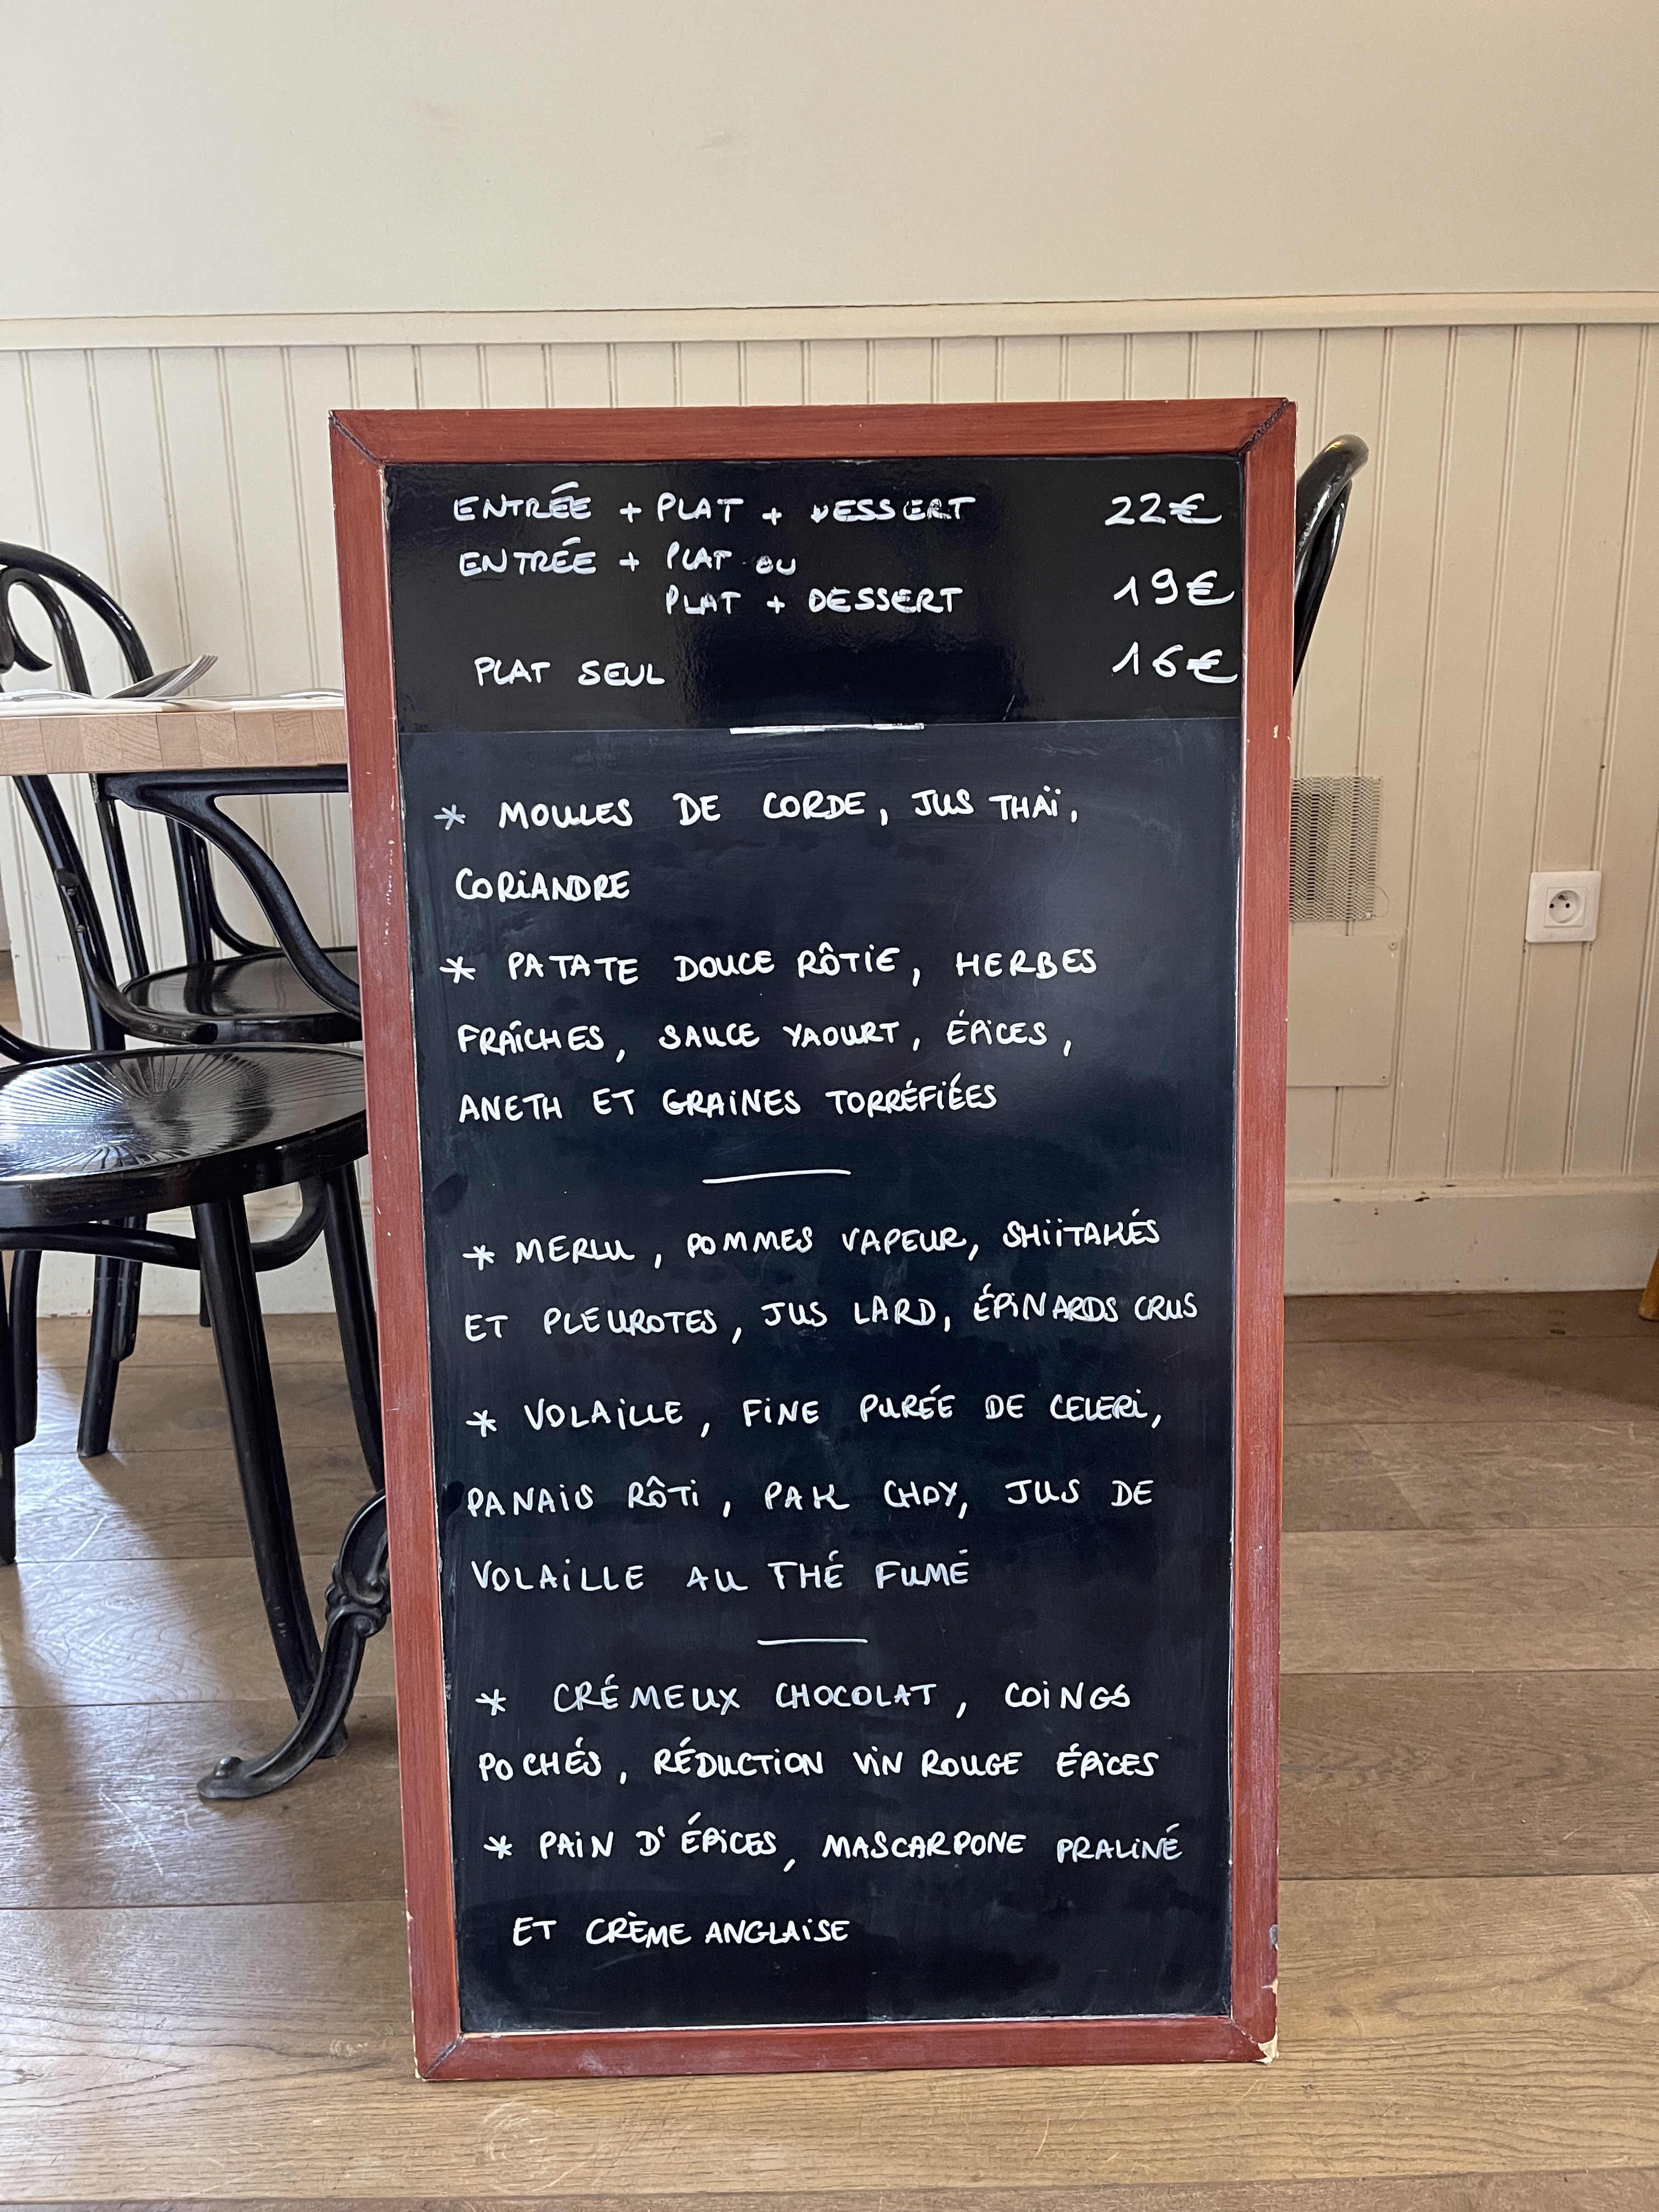 ENTRÉE + PLAT + DESSERT 22€
ENTRÉE + PLAT OU
PLAT + DESSERT 19€
PLAT SEUL 16€
* MOULES DE CORDE, JUS THAÏ,
CORIANDRE
* PATATE DOUCE RÔTIE, HERBES
FRAÎCHES, SAUCE YAOURT, ÉPICES,
ANETH ET GRAINES TORRÉFIÉES
* MERLU, POMMES VAPEUR, SHIITAKÉS
ET PLEUROTES, JUS LARD, ÉPINARDS CRUS
* VOLAILLE, FINE PURÉE DE CELERI,
PANAIS RÔTI, PAK CHOY, JUS DE
VOLAILLE AU THÉ FUMÉ
* CRÉMEUX CHOCOLAT, COINGS
POCHÉS, RÉDUCTION VIN ROUGE ÉPICES
* PAIN D'ÉPICES, MASCARPONE PRALINÉ
ET CRÈME ANGLAISE